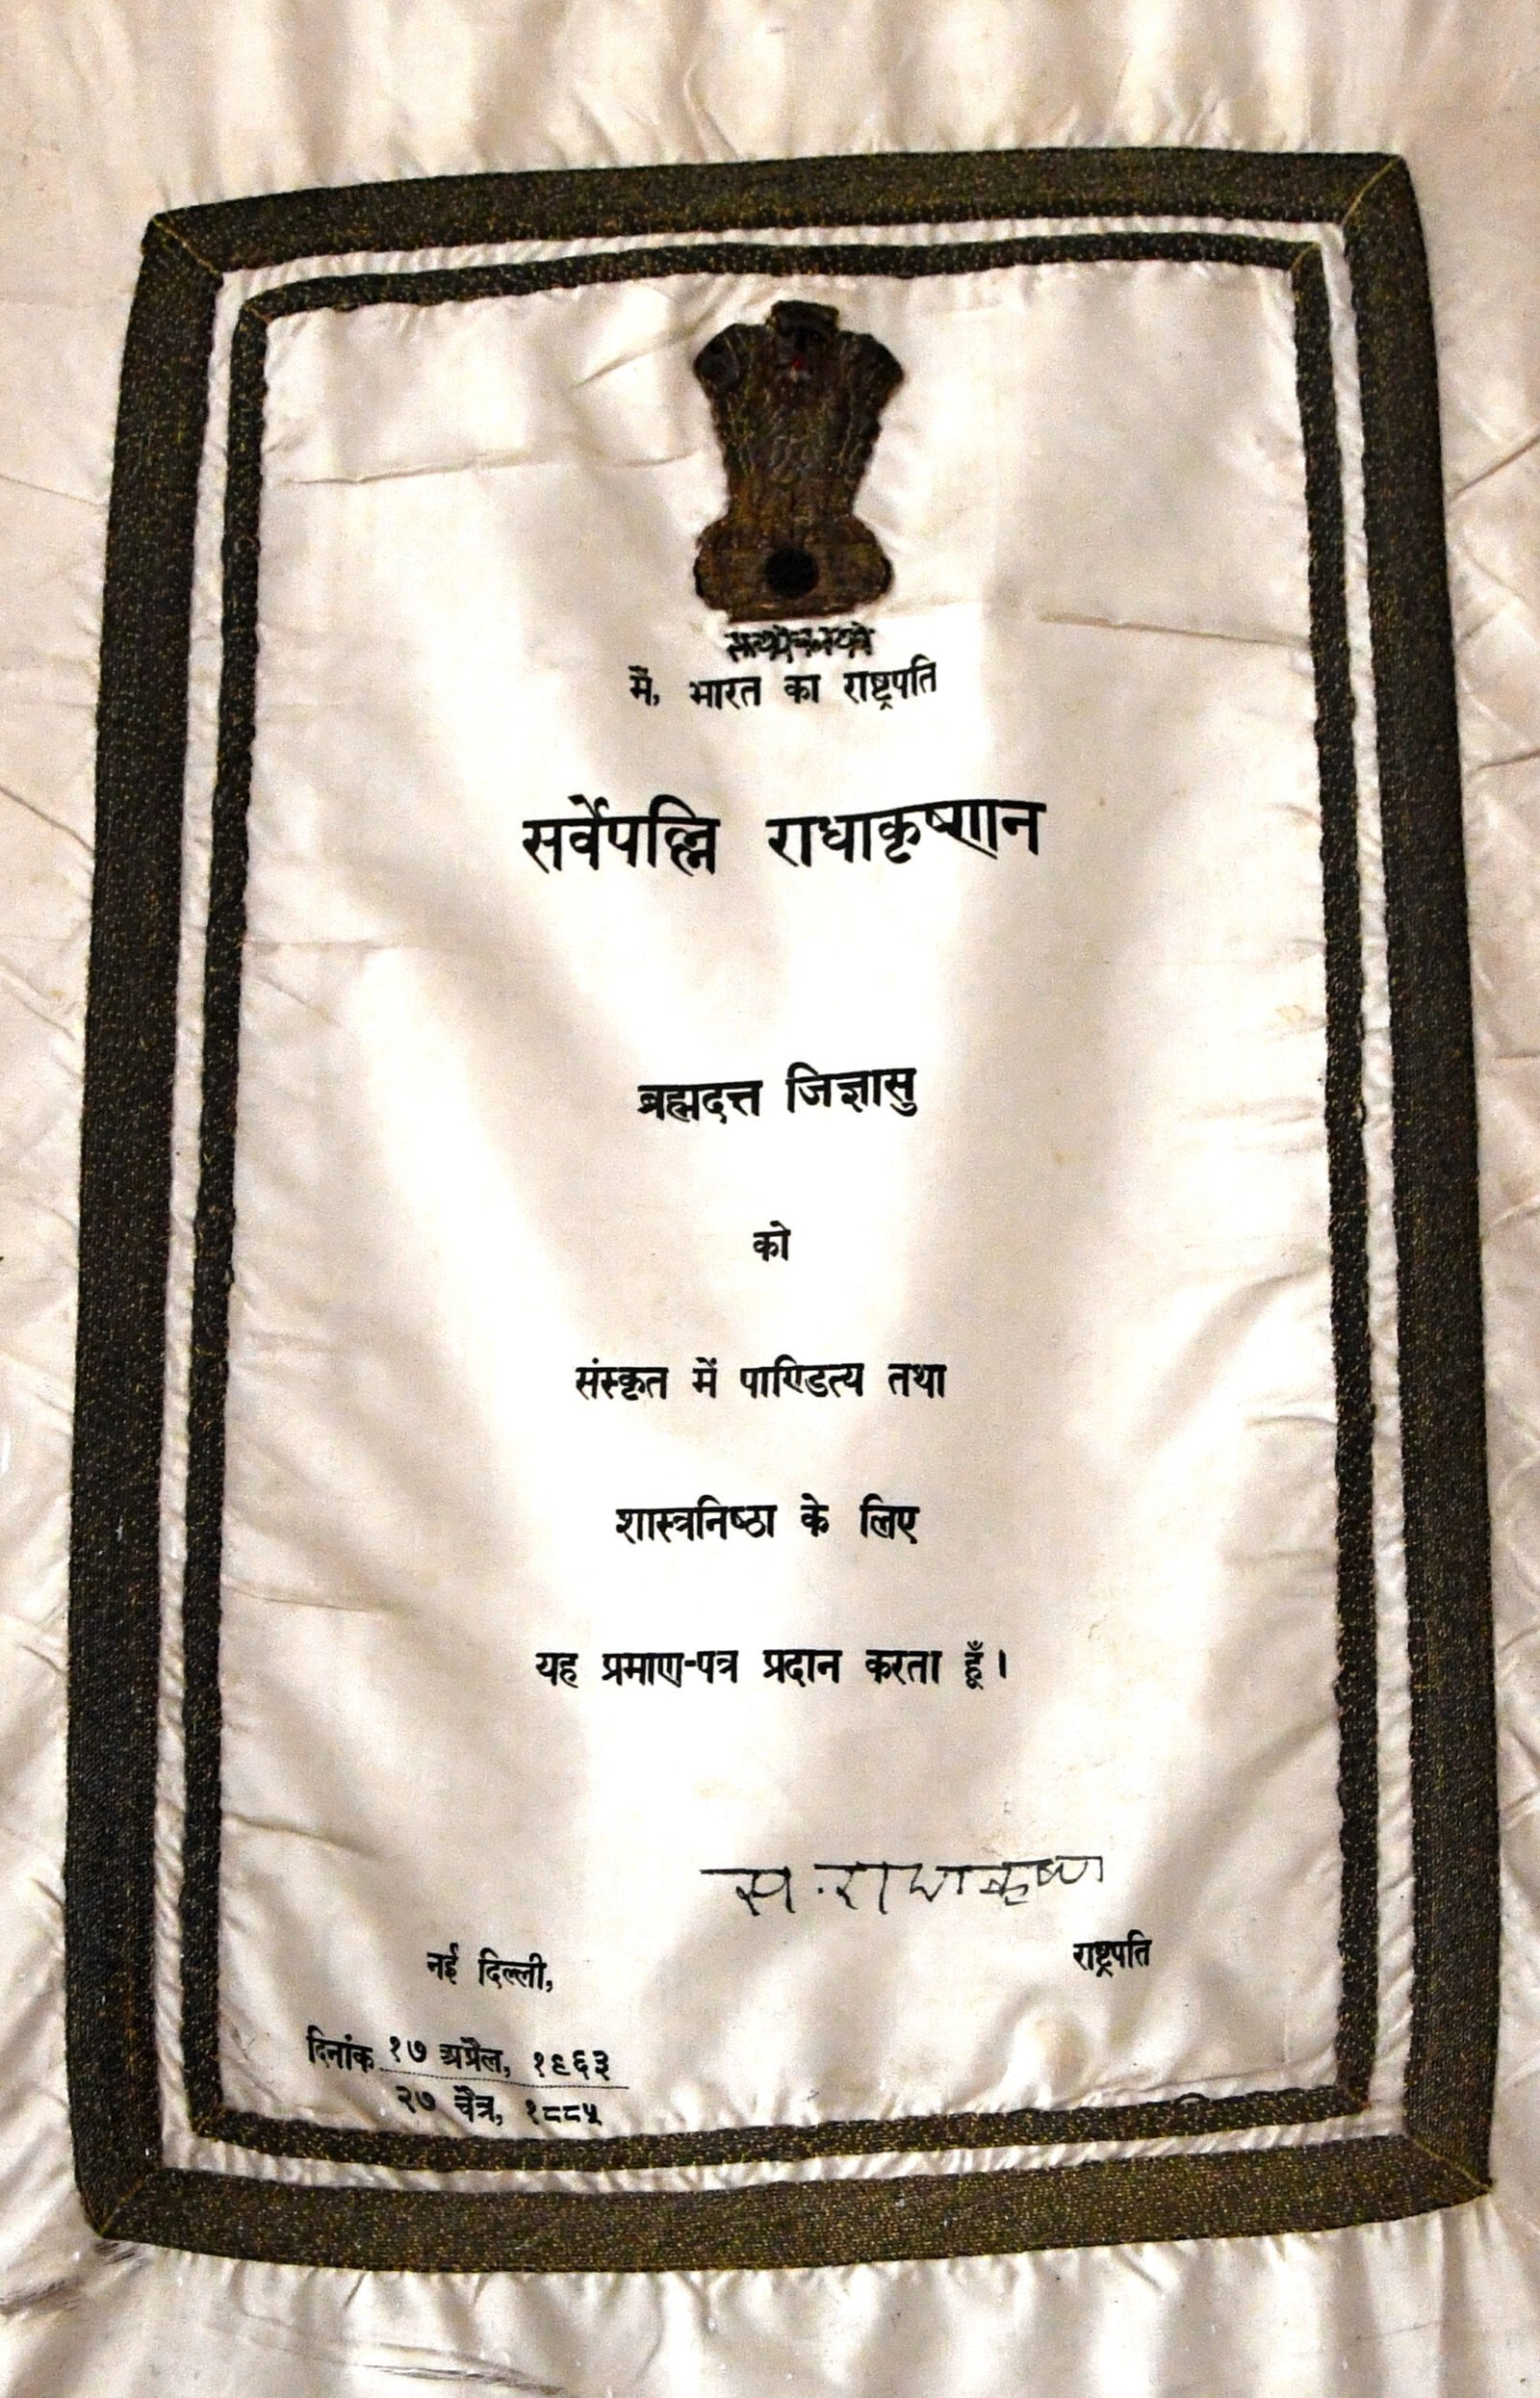 सत्यमेव जयते
मैं, भारत का राष्ट्रपति
सर्वेपल्लि राधाकृष्णन
ब्रह्मदत्त जिज्ञासु
को
संस्कृत में पाण्डित्य तथा
शास्त्रनिष्ठा के लिए
यह प्रमाण-पत्र प्रदान करता हूँ।
स. राधाकृष्ण
राष्ट्रपति
नई दिल्ली,
दिनांक १७ अप्रैल, १९६३
२७ चैत्र, १८८५